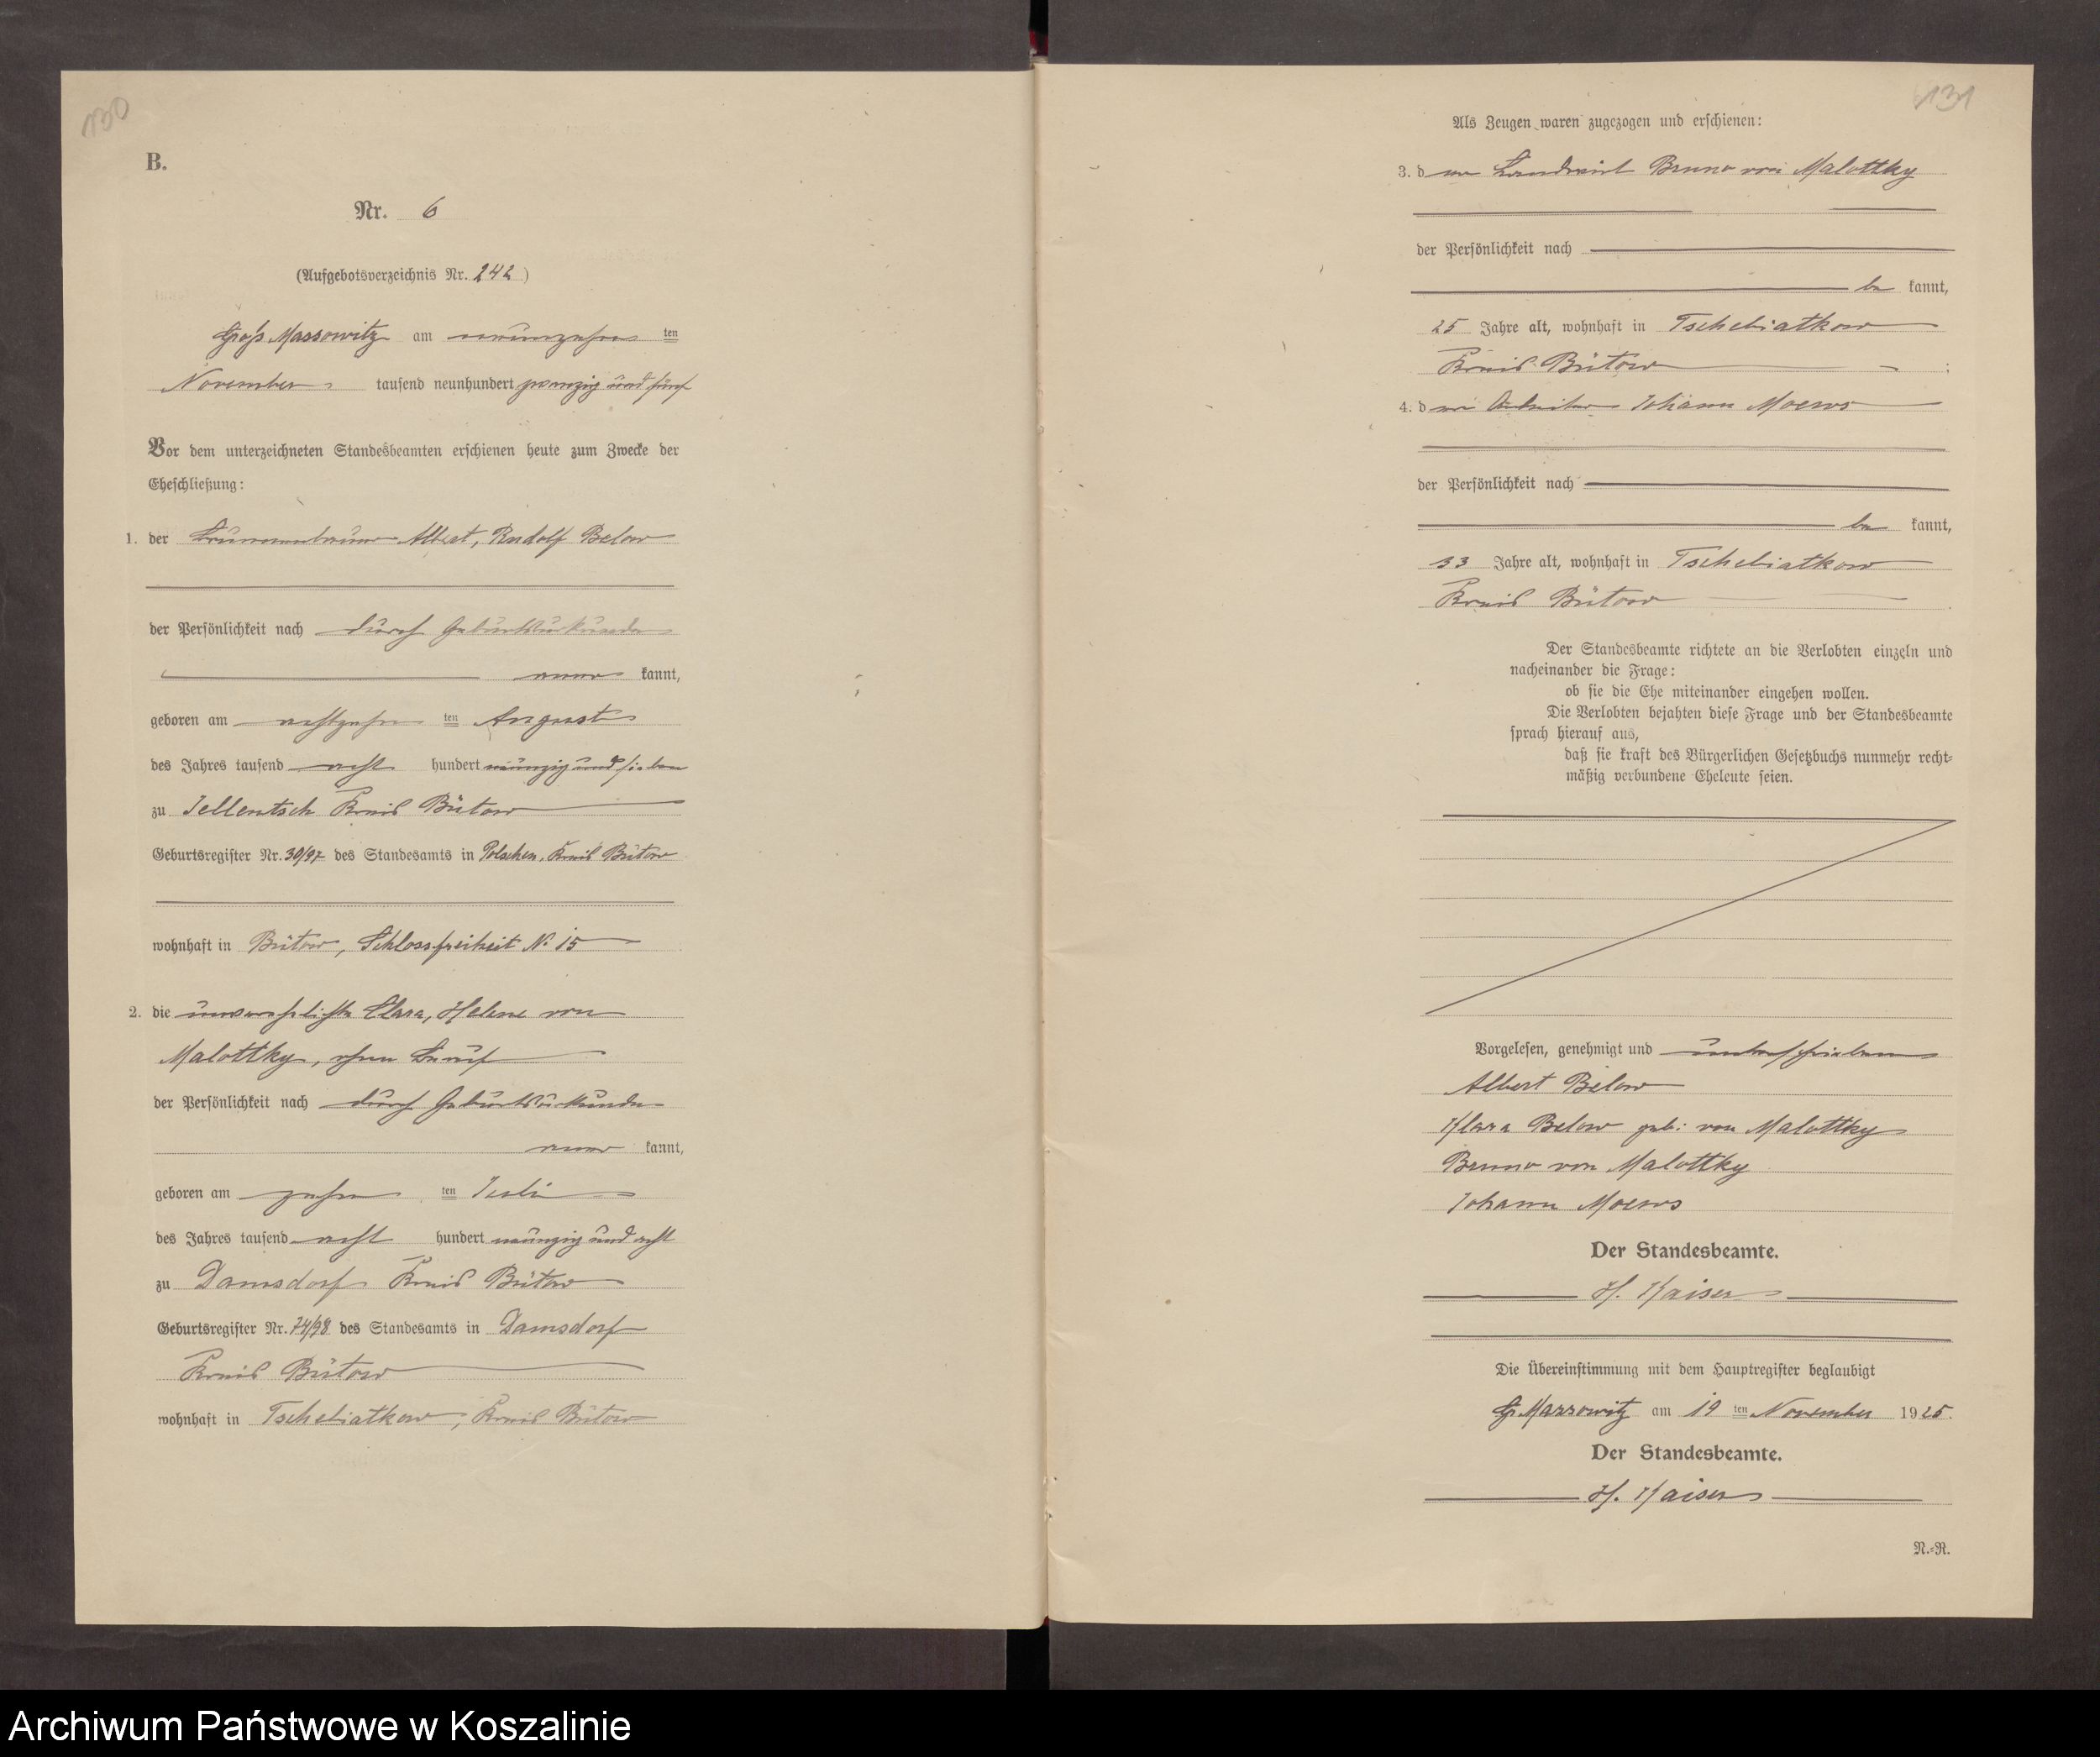 130
B.
Nr. 6
(Aufgebotsverzeichnis Nr. 242)
Groß Massowitz am neunzehn ten
November tausend neunhundert zwanzig und fünf
Vor dem unterzeichneten Standesbeamten erschienen heute zum Zwecke der
Eheschließung:
1. der Brunnenbauer Albert, Rudolf Below
der Persönlichkeit nach durch Geburtsurkunde
aner kannt,
geboren am achtzehn ten August
des Jahres tausend acht hundert neunzig und sieben
zu Jellentsch Kreis Bütow
Geburtsregister Nr. 30/97 des Standesamts in Polschen, Kreis Bütow
wohnhaft in Bütow, Schlossfreiheit N. 15
2. die unverehelichte Clara, Helene von
Malottky, ohne Beruf
der Persönlichkeit nach durch Geburtsurkunde
aner kannt,
geboren am zehn ten Juli
des Jahres tausend acht hundert neunzig und acht
zu Damsdorf Kreis Bütow
Geburtsregister Nr. 74/98 des Standesamts in Damsdorf
Kreis Bütow
wohnhaft in Tschebiatkow, Kreis Bütow
131
Als Zeugen waren zugezogen und erschienen:
3. der Landwirt Bruno von Malottky
der Persönlichkeit nach
be kannt,
25 Jahre alt, wohnhaft in Tschebiatkow
Kreis Bütow ;
4. der Arbeiter Johann Moews
der Persönlichkeit nach
be kannt,
33 Jahre alt, wohnhaft in Tschebiatkow
Kreis Bütow .
Der Standesbeamte richtete an die Verlobten einzeln und
nacheinander die Frage:
ob sie die Ehe miteinander eingehen wollen.
Die Verlobten bejahten diese Frage und der Standesbeamte
sprach hierauf aus,
daß sie kraft des Bürgerlichen Gesetzbuchs nunmehr recht-
mäßig verbundene Eheleute seien.
Vorgelesen, genehmigt und unterschrieben
Albert Below
Klara Below geb. von Malottky
Bruno von Malottky
Johann Moews
Der Standesbeamte.
H. Kaiser
Die Übereinstimmung mit dem Hauptregister beglaubigt
Gr Massowitz am 19 ten November 1925.
Der Standesbeamte.
H. Kaiser
N.-R.
Archiwum Państwowe w Koszalinie